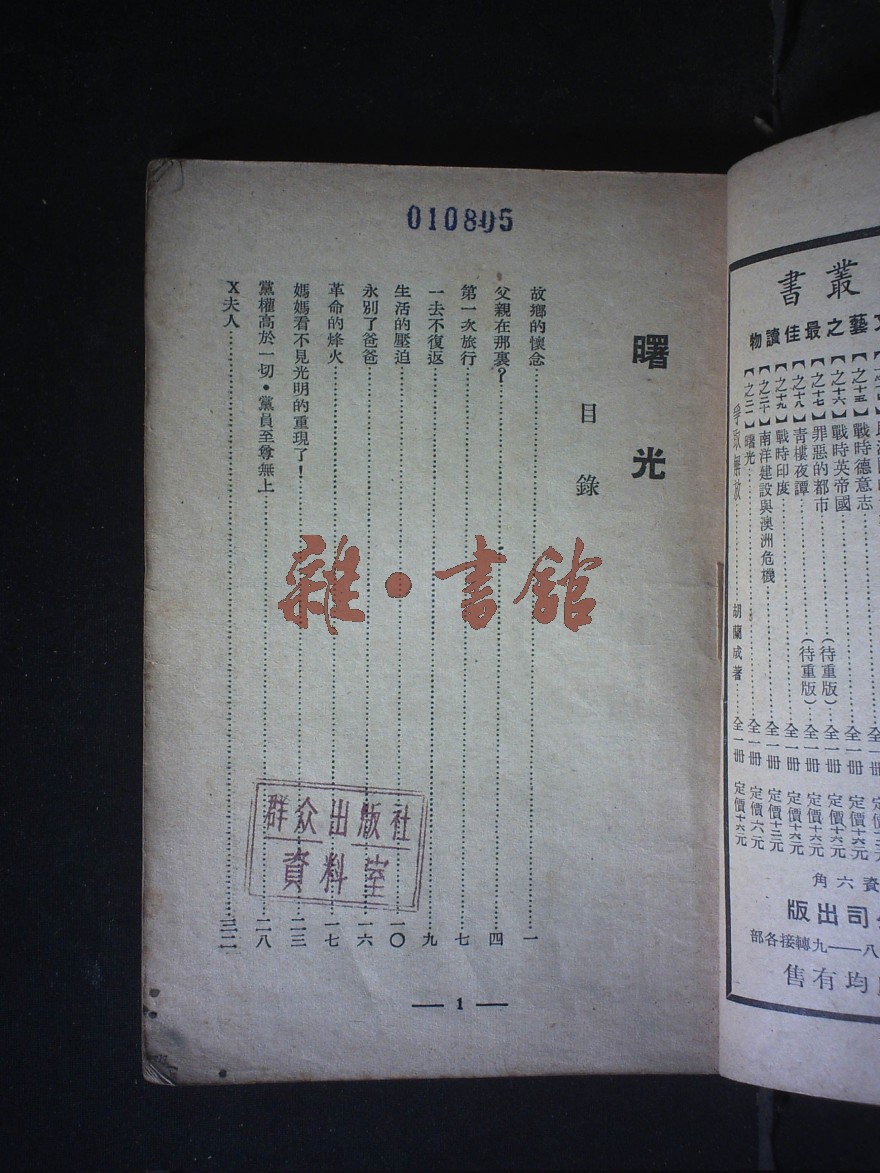 010805
曙光
目錄
故鄉的懷念……一
父親在那裏？……四
第一次旅行……七
一去不復返……九
生活的壓迫……一〇
永別了爸爸……一六
革命的烽火……一七
媽媽看不見光明的重現了！……二三
黨權高於一切・黨員至尊無上……二八
X夫人……三二
— 1 —
雜・書館
群众出版社
資料室
叢書
藝之最佳讀物
戰時德意志……全一冊
【之十六】戰時英帝國……全一冊 定價
【之十七】罪惡的都市……(待重版)全一冊 定價十六元
【之十八】青樓夜譚……(待重版)全一冊 定價十六元
【之十九】戰時印度……全一冊 定價十六元
【之二十】南洋建設與澳洲危機……全一冊 定價十二元
曙光……全一冊 定價六元
爭取解放……胡蘭成著……全一冊 定價十六元
資六角
司出版
八——九轉接各部
均有售